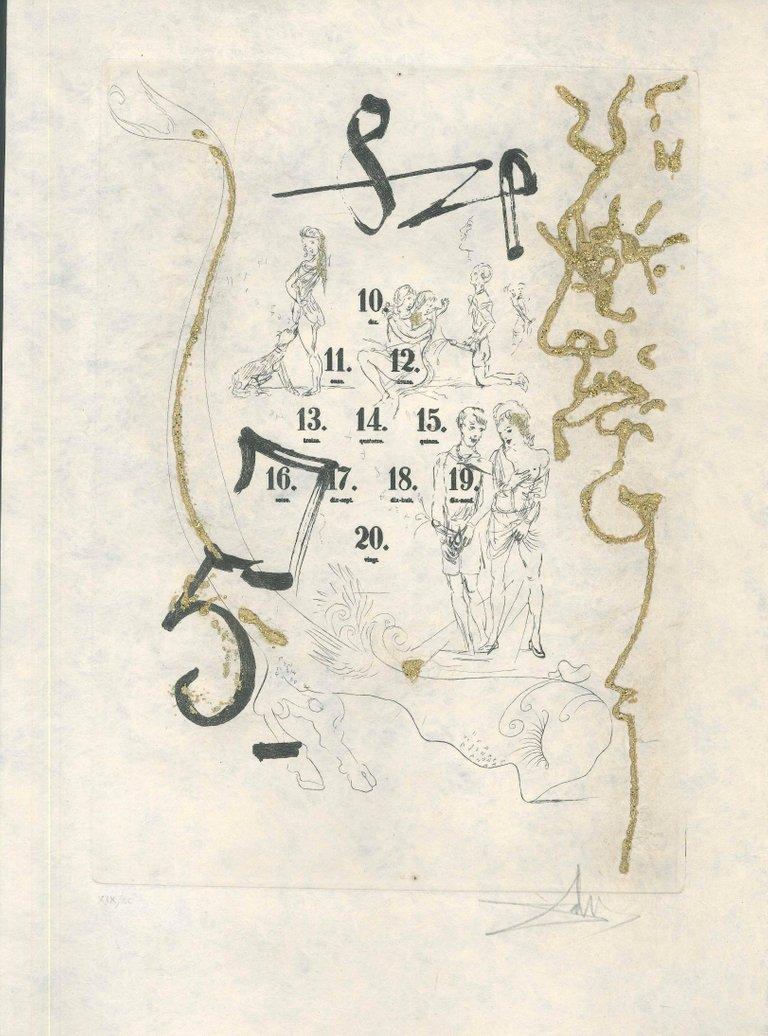 10.
dix.
11. 12.
onze. douze.
13. 14. 15.
treize. quatorze. quinze.
16. 17. 18. 19.
seize. dix-sept. dix-huit. dix-neuf.
20.
vingt.
7
5